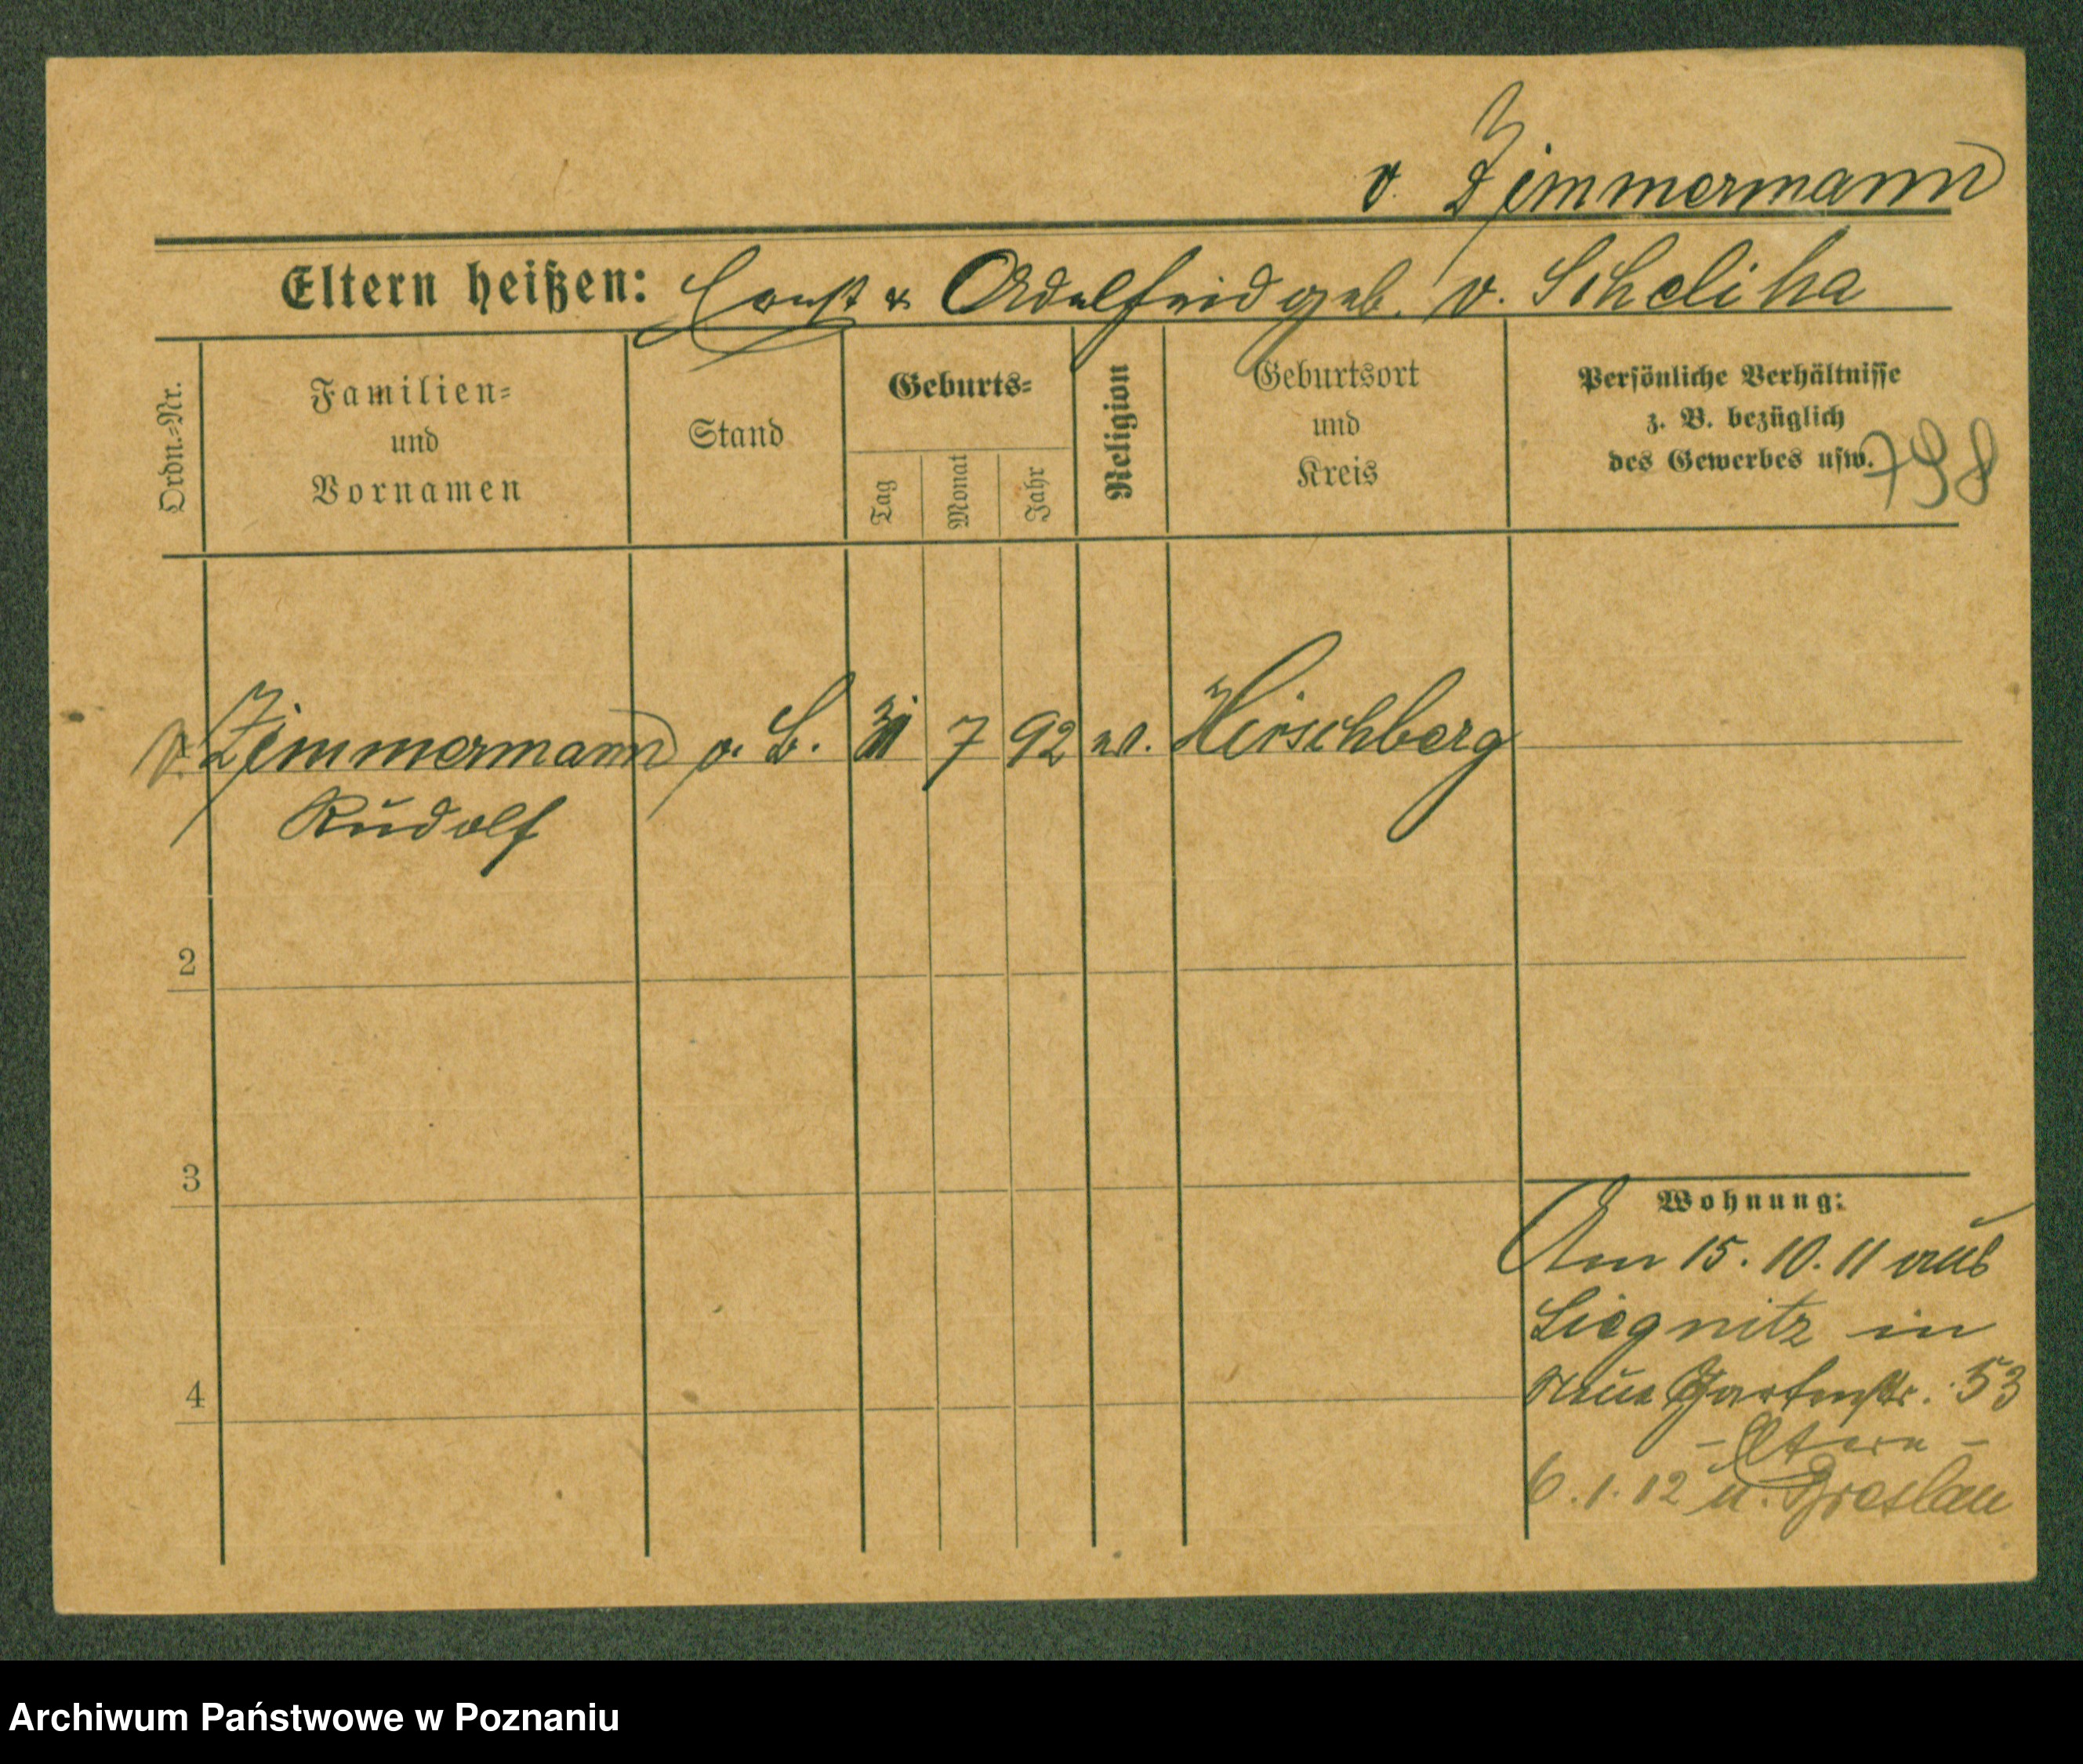 v. Zimmermann
Eltern heißen: Ernst & Adelheid geb. v. Scheliha
Ordn.-Nr.
Familien-
und
Vornamen
Stand
Geburts-
Tag
Monat
Jahr
Religion
Geburtsort
und
Kreis
Persönliche Verhältnisse
z. B. bezüglich
des Gewerbes usw.
798
v. Zimmermann o. B. 7 92 Hirschberg
Rudolf
2
3
4
Wohnung:
Am 15. 10. 11 aus
Liegnitz in
Neue Gartenstr. 53
6. 1. 12 n. Breslau
Archiwum Państwowe w Poznaniu